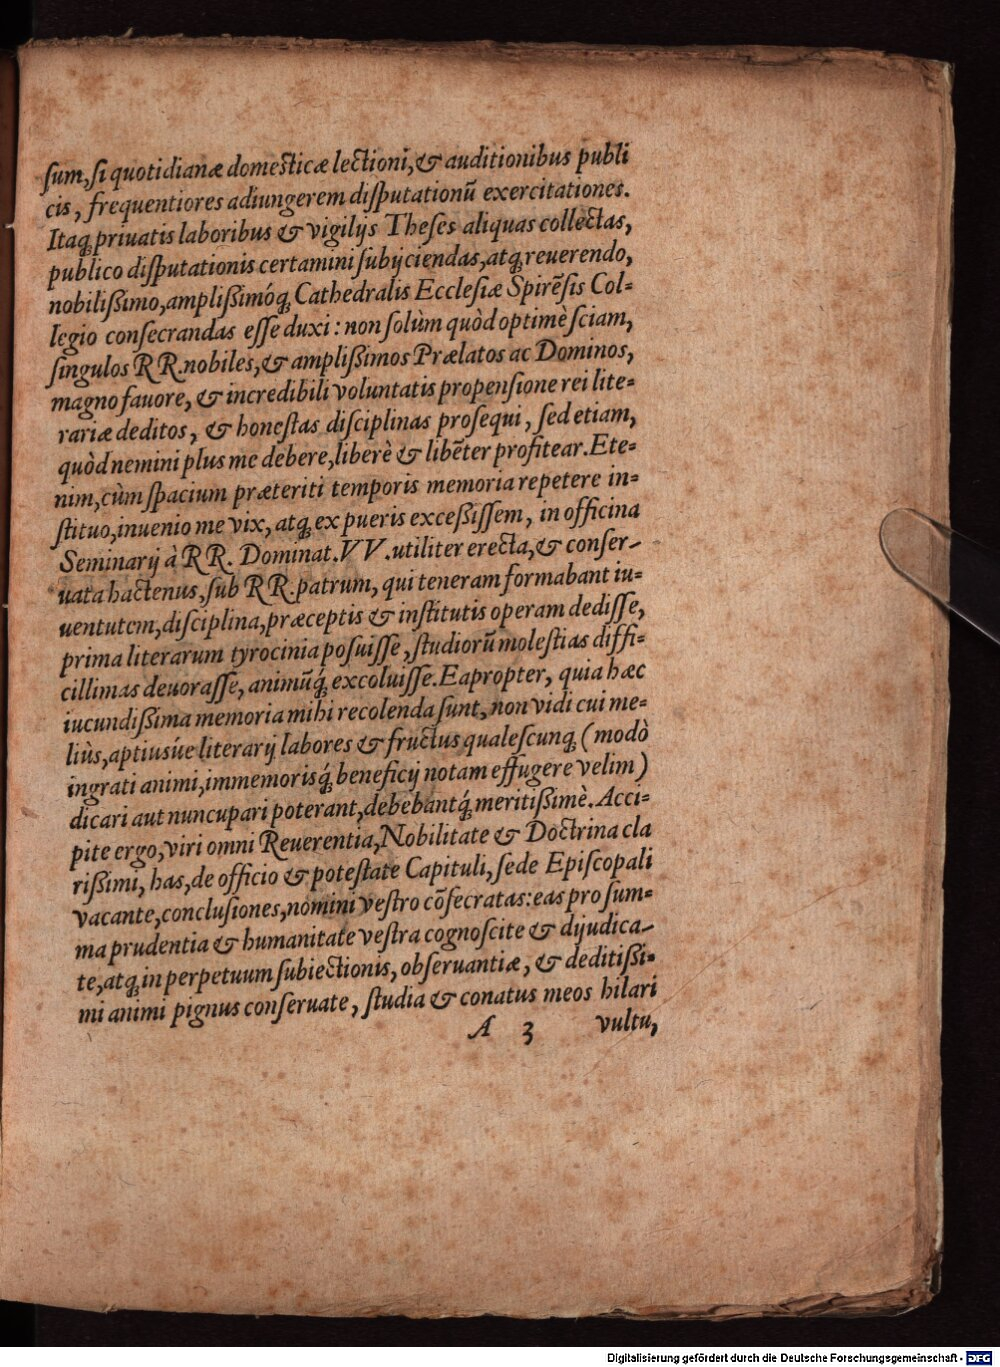 ſum, ſi quotidianæ domeſticæ lectioni, & auditionibus publi
cis, frequentiores adiungerem diſputationū exercitationes.
Itaq́ priuatis laboribus & vigilijs Theſes aliquas collectas,
publico diſputationis certamini ſubijciendas, atq́ reuerendo,
nobilißimo, amplißimóq́ Cathedralis Eccleſiæ Spirēſis Col-
legio conſecrandas eſſe duxi: non ſolùm quòd optimè ſciam,
ſingulos RR. nobiles, & amplißimos Prælatos ac Dominos,
magno fauore, & incredibili voluntatis propenſione rei lite-
rariæ deditos, & honeſtas diſciplinas proſequi, ſed etiam,
quòd nemini plus me debere, liberè & libēter profitear. Ete-
nim, cùm ſpacium præteriti temporis memoria repetere in-
ſtituo, inuenio me vix, atq́ ex pueris exceßiſſem, in officina
Seminarij à RR. Dominat. VV. utiliter erecta, & conſer-
uata hactenus, ſub RR. patrum, qui teneram formabant iu-
uentutem, diſciplina, præceptis & inſtitutis operam dediſſe,
prima literarum tyrocinia poſuiſſe, ſtudiorū moleſtias diffi-
cillimas deuoraſſe, animūq́ excoluiſſe. Eapropter, quia hæc
iucundißima memoria mihi recolenda ſunt, non vidi cui me-
liùs, aptiusúe literarij labores & fructus qualeſcunq́ (modò
ingrati animi, immemorisq́ beneficij notam effugere velim)
dicari aut nuncupari poterant, debebantq́ meritißimè. Acci-
pite ergo, viri omni Reuerentia, Nobilitate & Doctrina cla
rißimi, has, de officio & poteſtate Capituli, ſede Epiſcopali
vacante, concluſiones, nomini veſtro cōſecratas: eas pro ſum-
ma prudentia & humanitate veſtra cognoſcite & dijudica-
te, atq́ in perpetuum ſubiectionis, obſeruantiæ, & deditißi-
mi animi pignus conſeruate, ſtudia & conatus meos hilari
A 3 vultu,
Digitalisierung gefördert durch die Deutsche Forschungsgemeinschaft - DFG